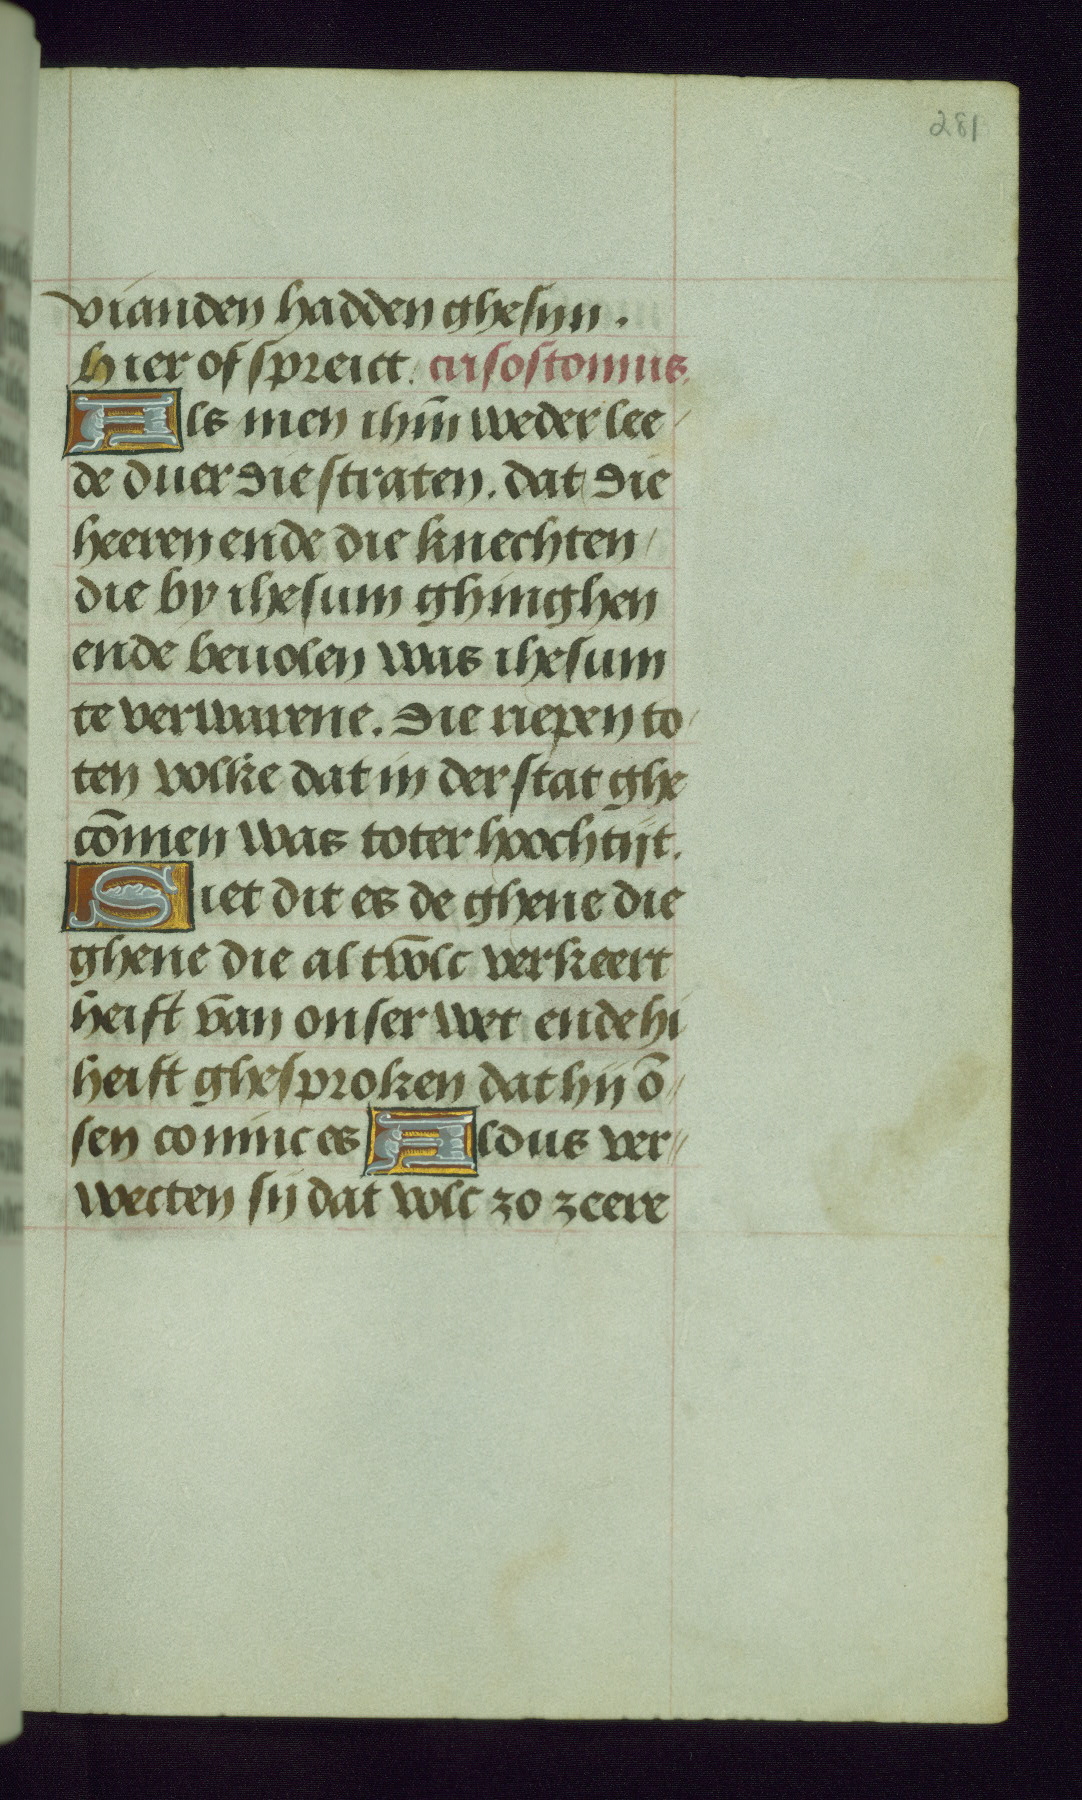 281
vianden hadden ghesijn.
hier of spreict. crisostomus.
Als men ihm̄ weder lee
de duer die straten. dat die
heeren ende die knechten
die by ihesum ghinghen
ende beuolen was ihesum
te verwarene. Die riepen to
ten volke dat in der stat ghe
cōmen was toter hoochtijt.
Siet dit es de ghene die
ghene die al tvolc verkeert
heift van onser wet ende hi
heift ghesproken dat hij ō
sen coninc es Aldus ver
wecten sij dat volc zo zeere